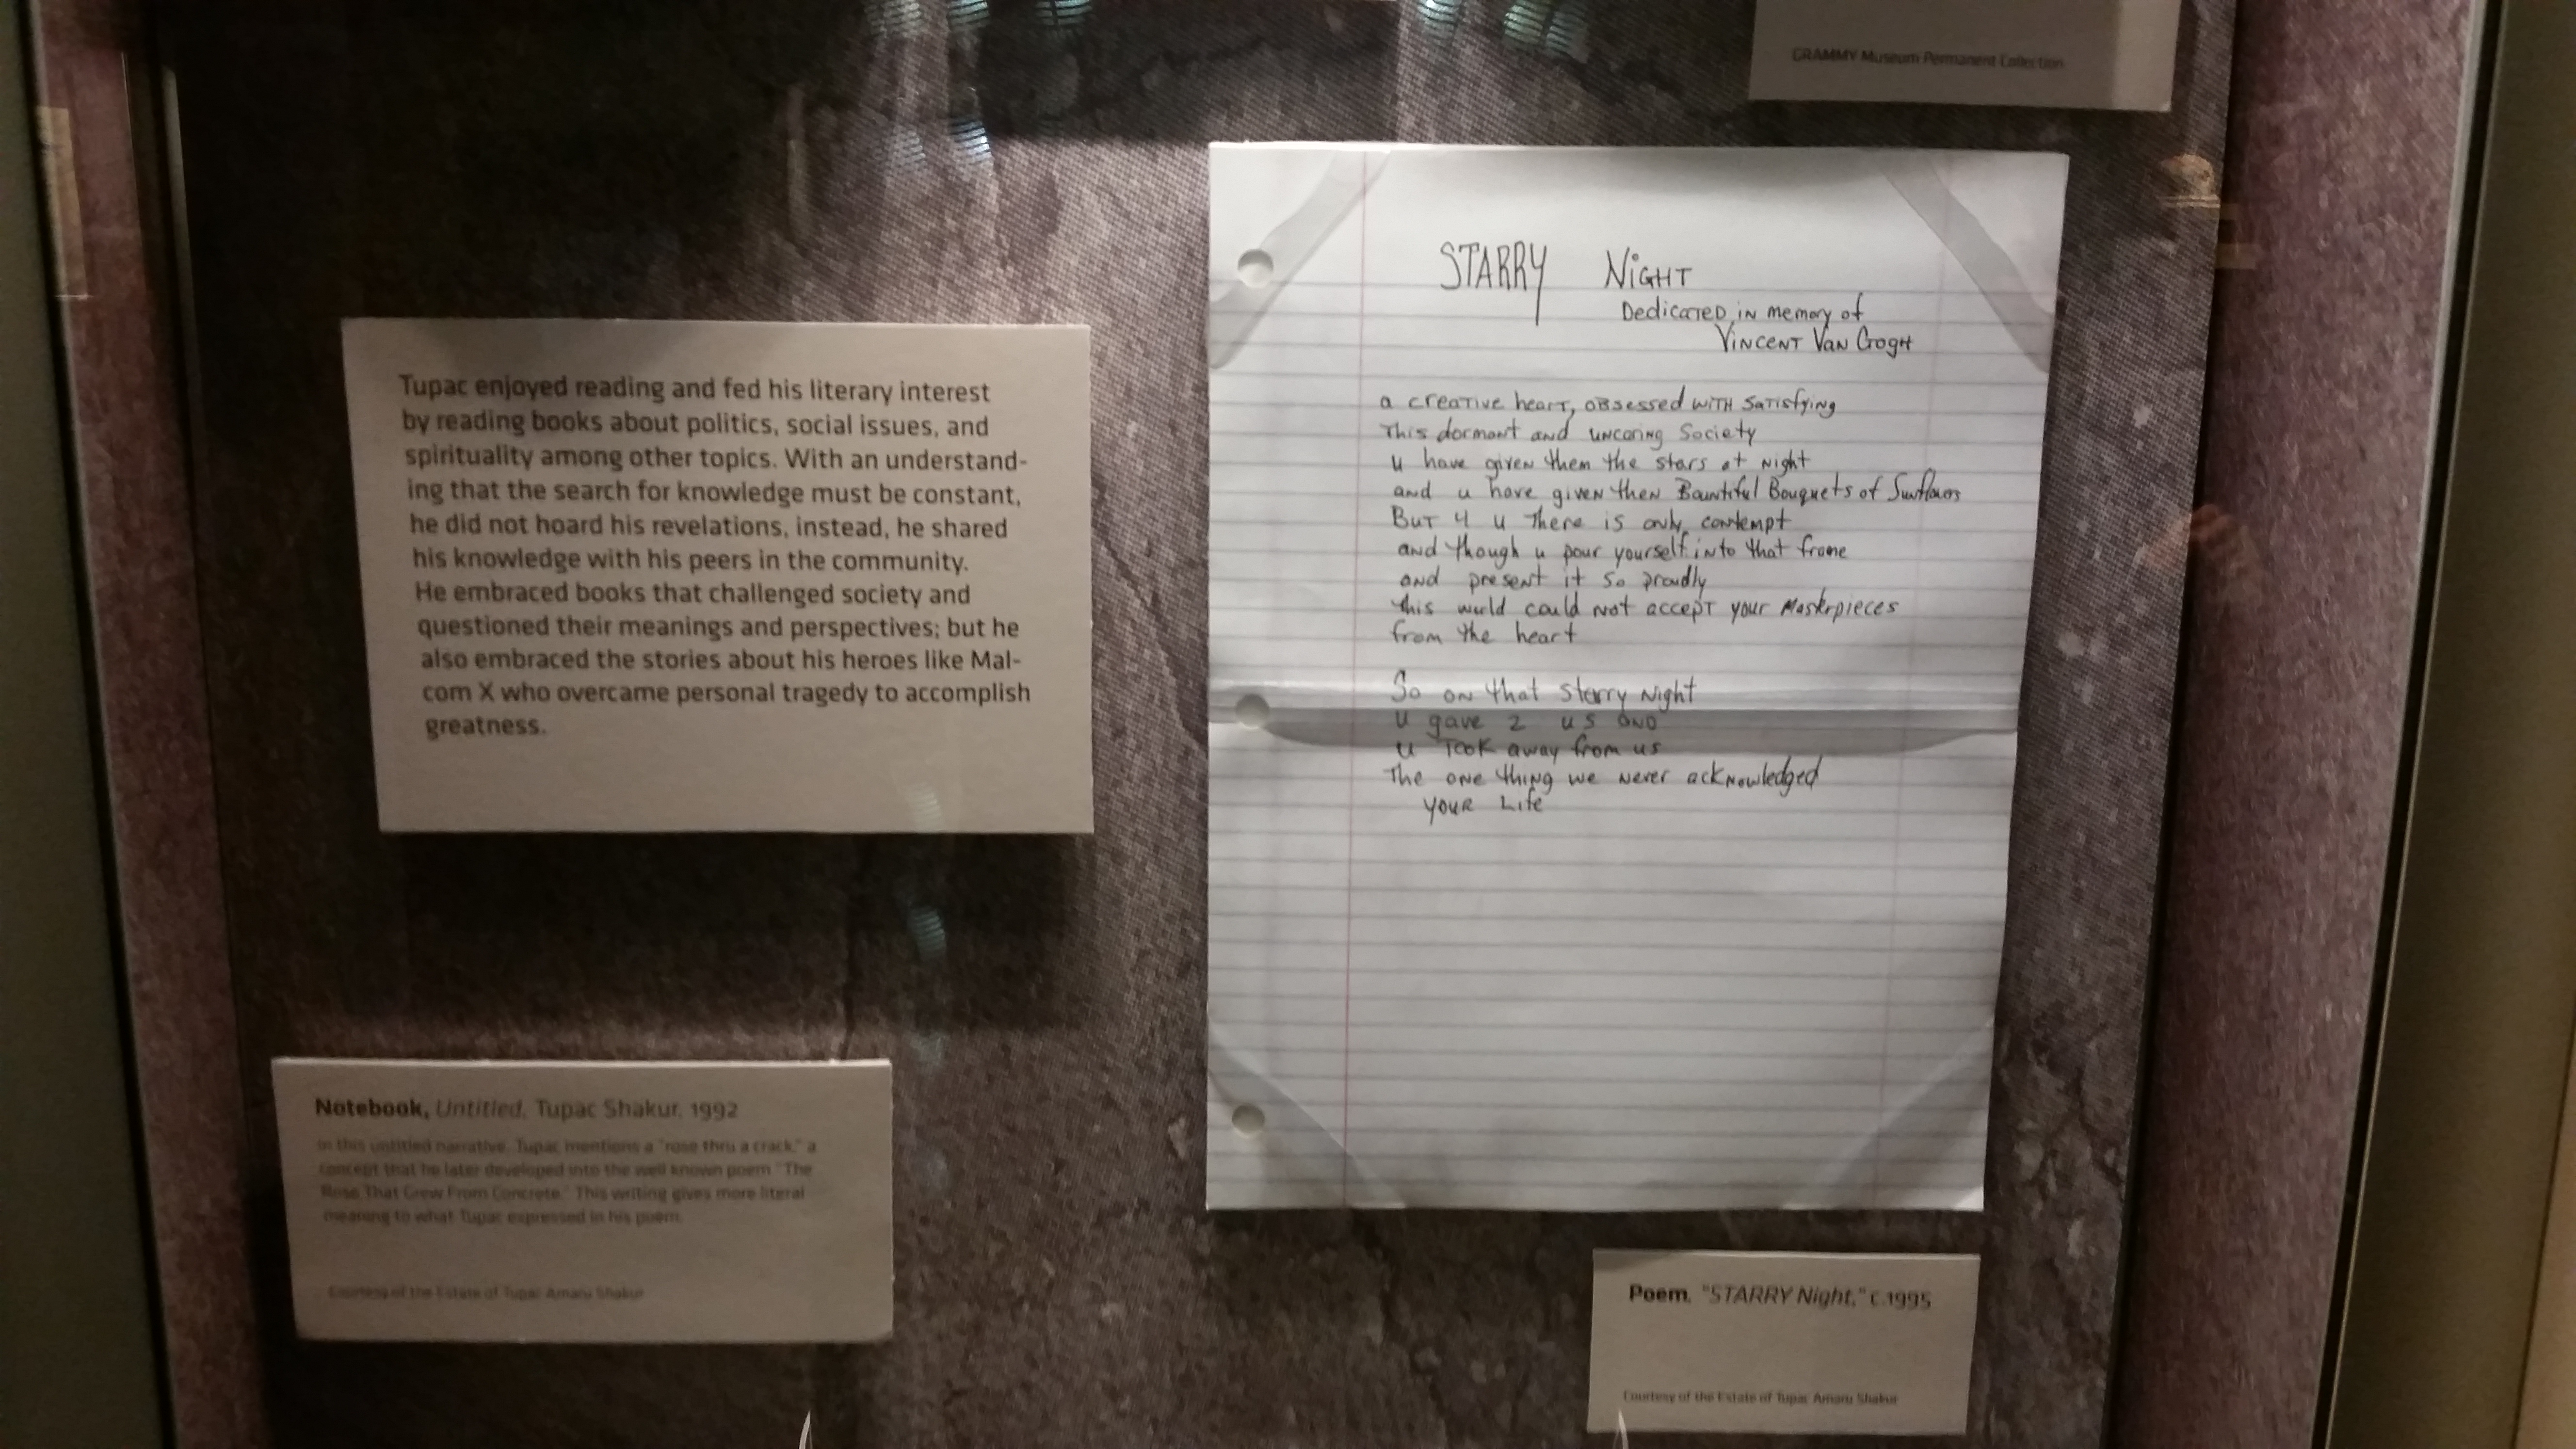 GRAMMY Museum Permanent Collection
STARRY NiGHT
Dedicated in memory of
Vincent Van Gogh
a creative heart, obsessed with satisfying
This dormant and uncaring Society
u have given them the stars at night
and u have given then Bountiful Bouquets of Sunflowers
But 4 u there is only contempt
and though u pour yourself into that frame
and present it so proudly
this world could not accept your Masterpieces
from the heart
So on that starry night
u gave 2 us and
u took away from us
The one thing we never acknowledged
your Life
Tupac enjoyed reading and fed his literary interest
by reading books about politics, social issues, and
spirituality among other topics. With an understand-
ing that the search for knowledge must be constant,
he did not hoard his revelations, instead, he shared
his knowledge with his peers in the community.
He embraced books that challenged society and
questioned their meanings and perspectives; but he
also embraced the stories about his heroes like Mal-
com X who overcame personal tragedy to accomplish
greatness.
Notebook, Untitled, Tupac Shakur, 1992
In this untitled narrative, Tupac mentions a "rose thru a crack," a
concept that he later developed into the well known poem "The
Rose That Grew From Concrete." This writing gives more literal
meaning to what Tupac expressed in his poem.
Courtesy of the Estate of Tupac Amaru Shakur
Poem, "STARRY Night," c.1995
Courtesy of the Estate of Tupac Amaru Shakur